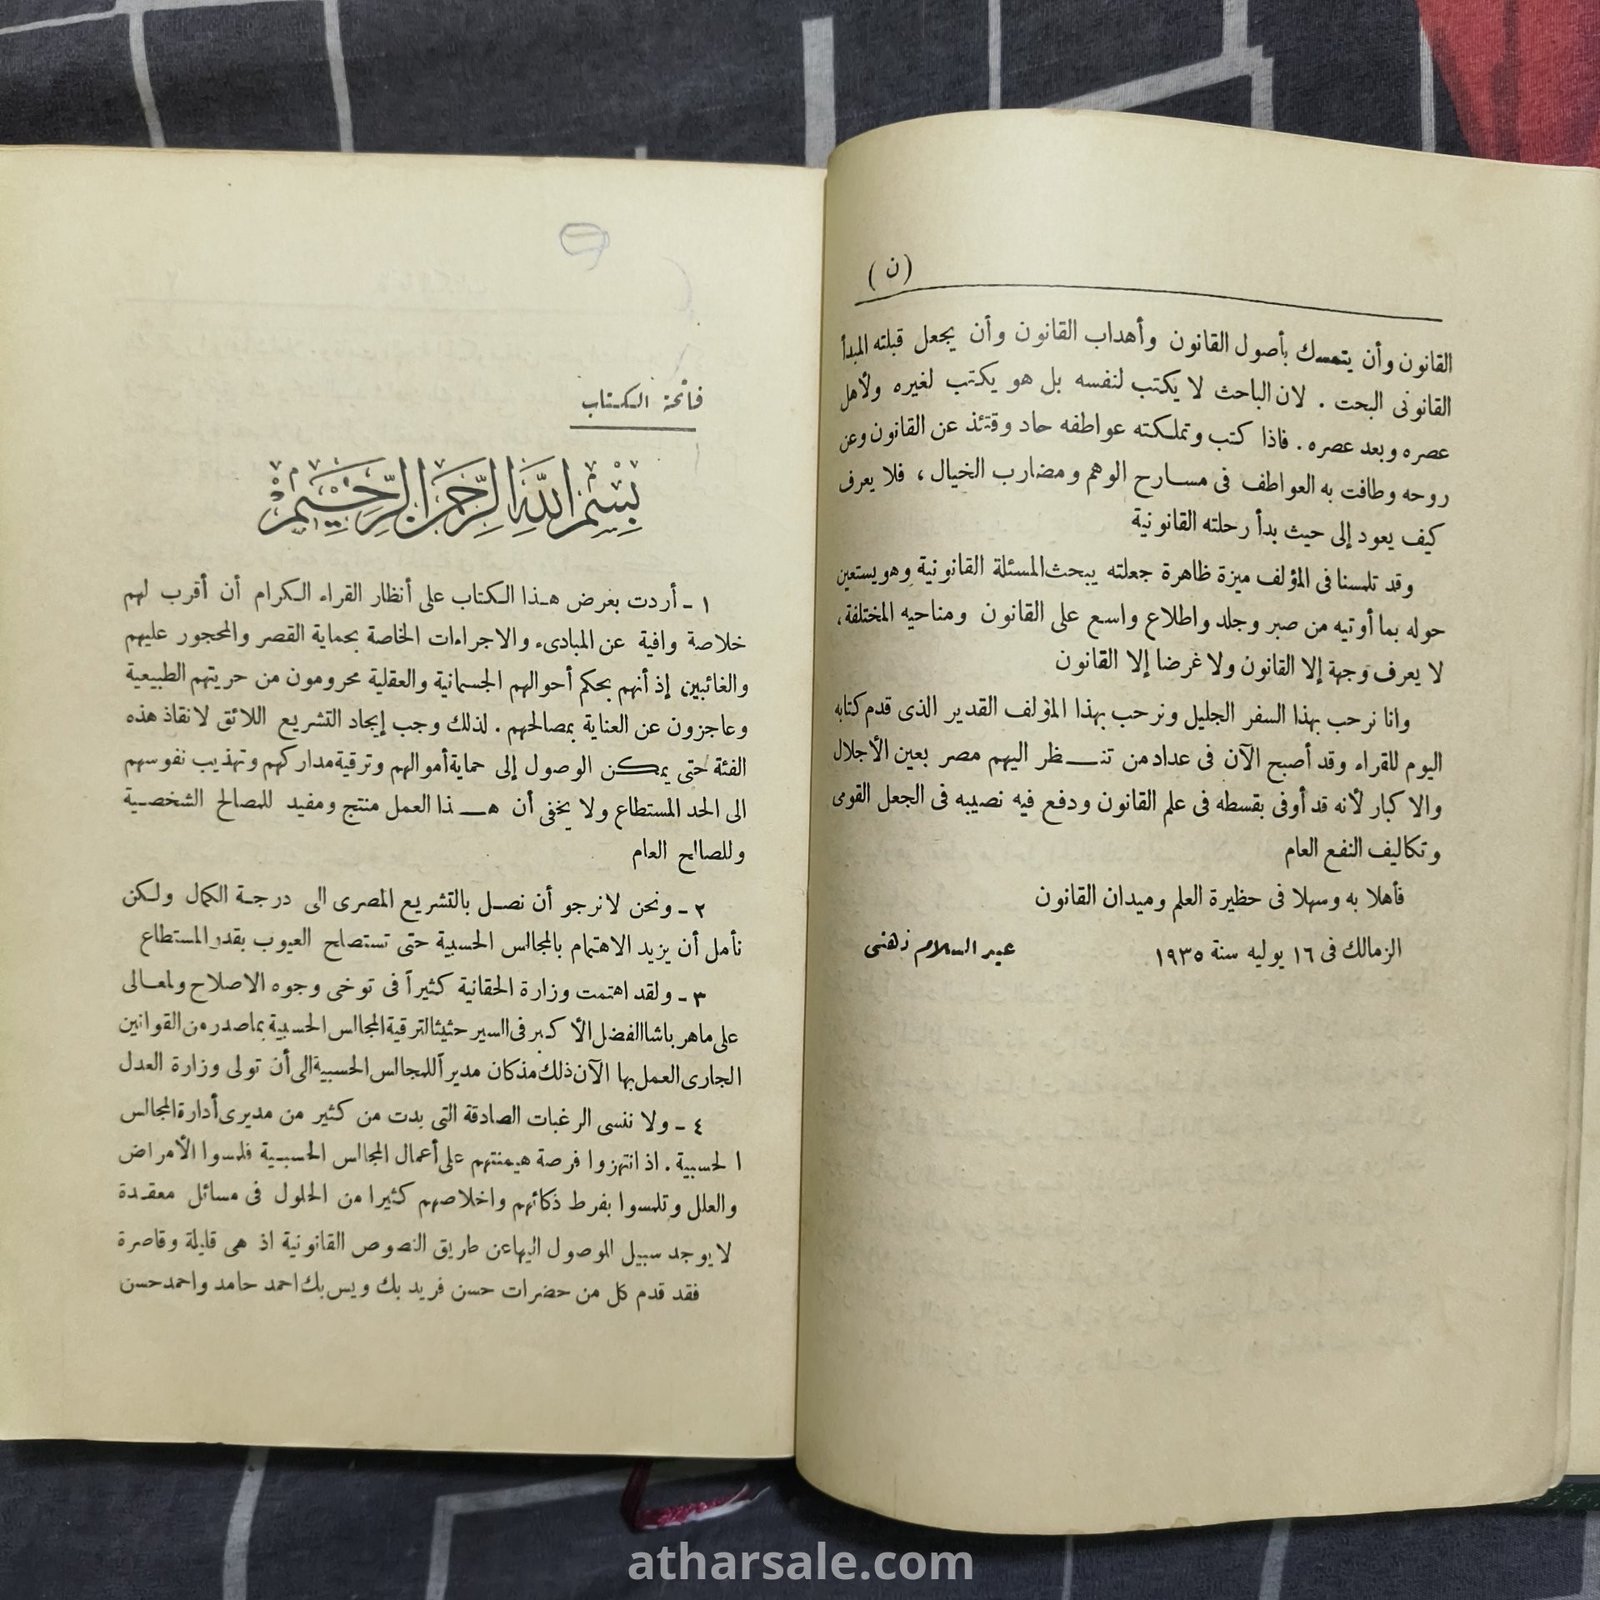 ( ن )
القانون وأن يتمسك بأصول القانون وأهداب القانون وأن يجعل قبلته المبدأ
القانونى البحت . لان الباحث لا يكتب لنفسه بل هو يكتب لغيره ولأهل
عصره وبعد عصره . فاذا كتب وتملكته عواطفه حاد وقتئذ عن القانون وعن
روحه وطافت به العواطف فى مسارح الوهم ومضارب الخيال ، فلا يعرف
كيف يعود إلى حيث بدأ رحلته القانونية
وقد تلمسنا فى المؤلف ميزة ظاهرة جعلته يبحث المسئلة القانونية وهو يستعين
حوله بما أوتيه من صبر وجلد واطلاع واسع على القانون ومناحيه المختلفة،
لا يعرف وجهة إلا القانون ولا غرضا إلا القانون
وانا نرحب بهذا السفر الجليل ونرحب بهذا المؤلف القدير الذى قدم كتابه
اليوم للقراء وقد أصبح الآن فى عداد من تنظر اليهم مصر بعين الأجلال
والاكبار لأنه قد أوفى بقسطه فى علم القانون ودفع فيه نصيبه فى الجعل القومى
وتكاليف النفع العام
فأهلا به وسهلا فى حظيرة العلم وميدان القانون
الزمالك فى ١٦ يوليه سنة ١٩٣٥ عبد السلام ذهنى
فاتحة الكتاب
بسم الله الرحمن الرحيم
١ - أردت بعرض هذا الكتاب على أنظار القراء الكرام أن أقرب لهم
خلاصة وافية عن المبادىء والاجراءات الخاصة بحماية القصر والمحجور عليهم
والغائبين إذ أنهم بحكم أحوالهم الجسمانية والعقلية محرومون من حريتهم الطبيعية
وعاجزون عن العناية بمصالحهم . لذلك وجب إيجاد التشريع اللائق لانقاذ هذه
الفئة حتى يمكن الوصول إلى حماية أموالهم وترقية مداركهم وتهذيب نفوسهم
الى الحد المستطاع ولا يخفى أن هذا العمل منتج ومفيد للمصالح الشخصية
وللصالح العام
٢ - ونحن لا نرجو أن نصل بالتشريع المصرى الى درجة الكمال ولكن
نأمل أن يزيد الاهتمام بالمجالس الحسبية حتى تستصلح العيوب بقدر المستطاع
٣ - ولقد اهتمت وزارة الحقانية كثيراً فى توخى وجوه الاصلاح ولمعالى
على ماهر باشا الفضل الأكبر فى السير حثيثا لترقية المجالس الحسبية بما صدر من القوانين
الجارى العمل بها الآن ذلك مذ كان مديراً للمجالس الحسبية الى أن تولى وزارة العدل
٤ - ولا ننسى الرغبات الصادقة التى بدت من كثير من مديرى أدارة المجالس
الحسبية . اذ انتهزوا فرصة هيمنتهم على أعمال المجالس الحسبية فلمسوا الأمراض
والعلل وتلمسوا بفرط ذكائهم واخلاصهم كثيرا من الحلول فى مسائل معقدة
لا يوجد سبيل الموصول اليها عن طريق النصوص القانونية اذ هى قليلة وقاصرة
فقد قدم كل من حضرات حسن فريد بك ويس بك احمد حامد واحمد حسن
atharsale.com